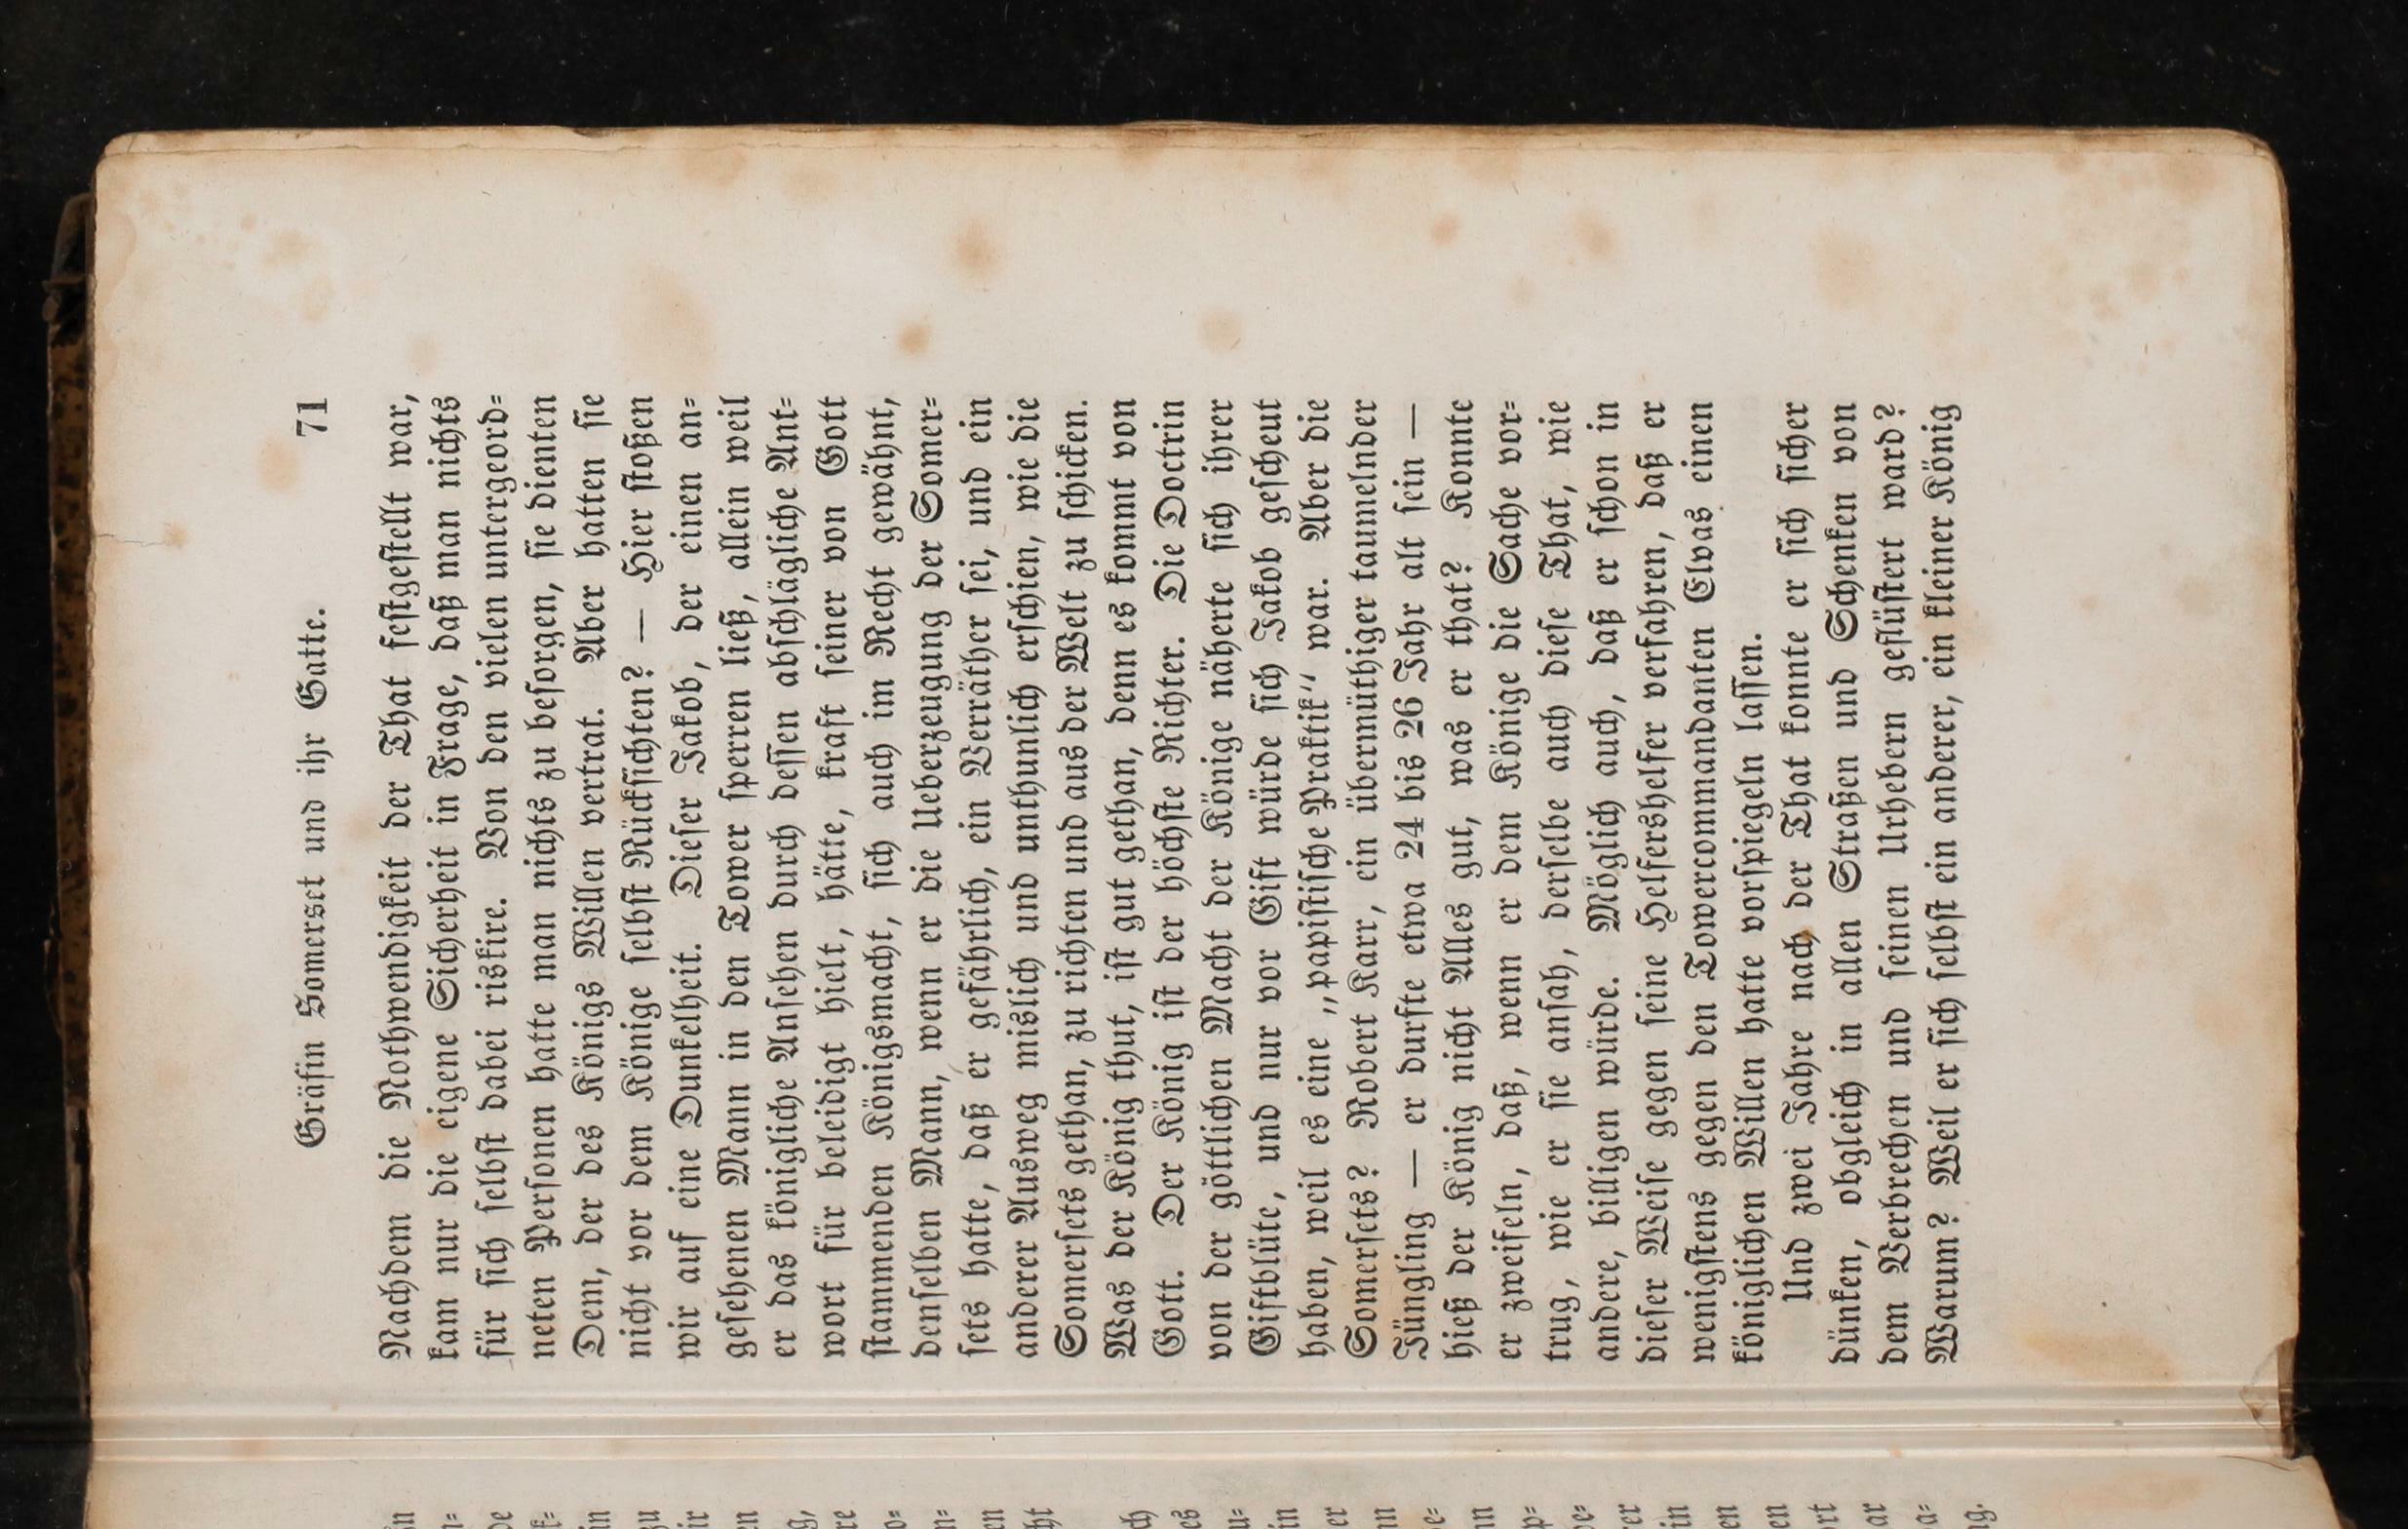 Gräfin Somerset und ihr Gatte. 71
Nachdem die Nothwendigkeit der That festgestellt war,
kam nur die eigene Sicherheit in Frage, daß man nichts
für sich selbst dabei riskire. Von den vielen untergeord-
neten Personen hatte man nichts zu besorgen, sie dienten
Dem, der des Königs Willen vertrat. Aber hatten sie
nicht vor dem Könige selbst Rücksichten? — Hier stoßen
wir auf eine Dunkelheit. Dieser Jakob, der einen an-
gesehenen Mann in den Tower sperren ließ, allein weil
er das königliche Ansehen durch dessen abschlägliche Ant-
wort für beleidigt hielt, hätte, kraft seiner von Gott
stammenden Königsmacht, sich auch im Recht gewähnt,
denselben Mann, wenn er die Ueberzeugung der Somer-
sets hatte, daß er gefährlich, ein Verräther sei, und ein
anderer Ausweg mislich und unthunlich erschien, wie die
Somersets gethan, zu richten und aus der Welt zu schicken.
Was der König thut, ist gut gethan, denn es kommt von
Gott. Der König ist der höchste Richter. Die Doctrin
von der göttlichen Macht der Könige näherte sich ihrer
Giftblüte, und nur vor Gift würde sich Jakob gescheut
haben, weil es eine „papistische Praktik“ war. Aber die
Somersets? Robert Karr, ein übermüthiger taumelnder
Jüngling — er durfte etwa 24 bis 26 Jahr alt sein —
hieß der König nicht Alles gut, was er that? Konnte
er zweifeln, daß, wenn er dem Könige die Sache vor-
trug, wie er sie ansah, derselbe auch diese That, wie
andere, billigen würde. Möglich auch, daß er schon in
dieser Weise gegen seine Helfershelfer verfahren, daß er
wenigstens gegen den Towercommandanten Elvas einen
königlichen Willen hatte vorspiegeln lassen.
Und zwei Jahre nach der That konnte er sich sicher
dünken, obgleich in allen Straßen und Schenken von
dem Verbrechen und seinen Urhebern geflüstert ward?
Warum? Weil er sich selbst ein anderer, ein kleiner König